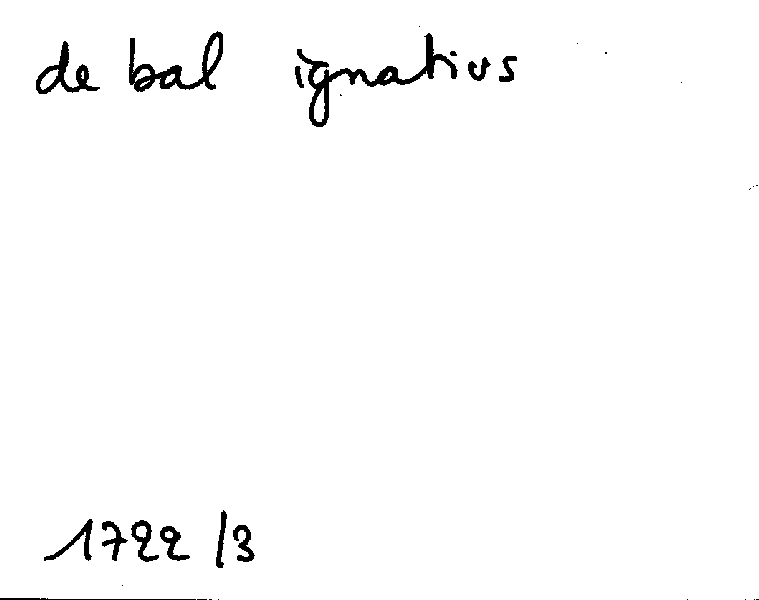 de bal ignatius
1722 /3